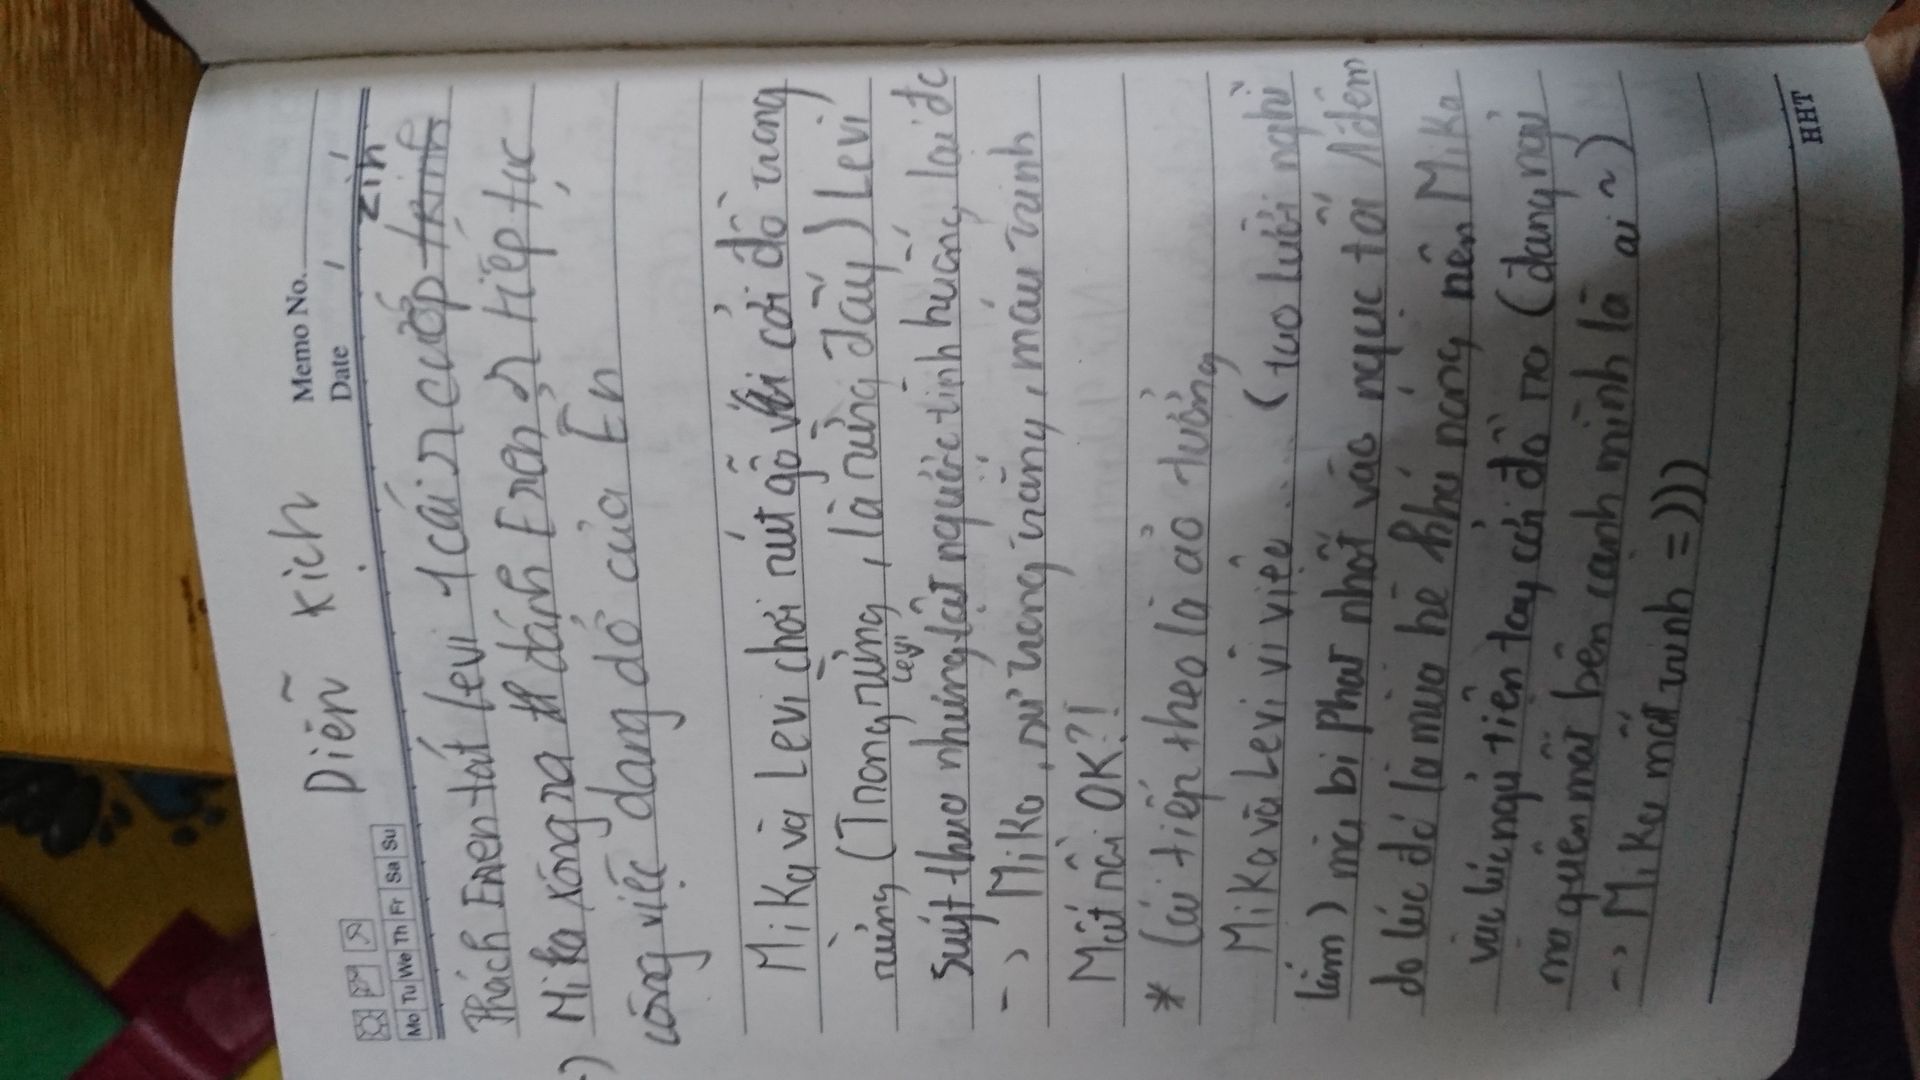 Memo No.
Date
Mo Tu We Th Fr Sa Su
Diễn kịch
zin
Thách Eren tát levi 1 cái rồi cướp trinh
Mika xông ra đánh Eren rồi tiếp tục
công việc dang dở của Er
Mika và Levi chơi rút gỗ Khi cởi đồ trong
rừng (Trong rừng, là rừng đấy) Levi
suýt thua nhưng lật ngược tình huống, lại đc
levi
-> Mika, nứ trong trắng, máu trinh
Mất rồi OK?!
* Cái tiếp theo là ảo tưởng
Mika và Levi vì việc... (tao lười nghĩ
lắm) mà bị phạt nhốt vào ngục tối 1 đêm
do lúc đó là mùa hè khá nóng nên Mika
vừa lúc ngủ tiện tay cởi đồ ra (dang ngủ
mà quên mất bên cạnh mình là ai ~)
-> Mika mất trinh =))))
HHT